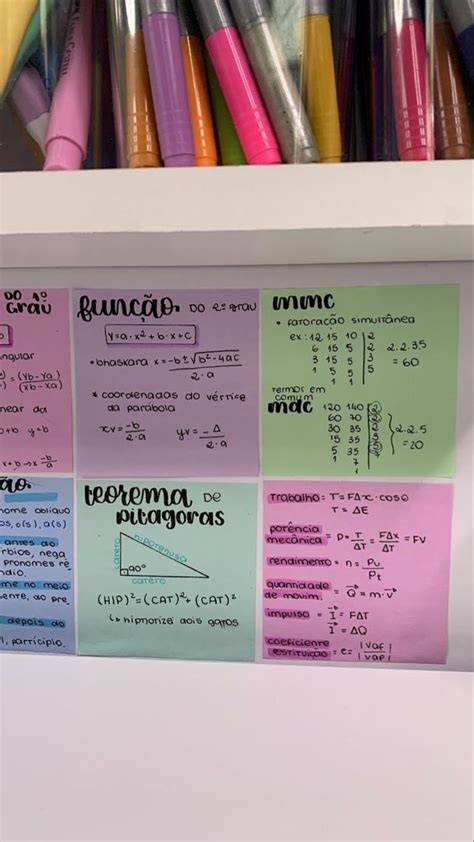 DO 1º
grau
angular
= (yb - ya)
(xb - xa)
linear da
y = b
→ x = -b
a
função DO 2º grau
y = a·x² + b·x + c
• bhaskara x = -b ± √b² - 4ac
2·a
* coordenadas do vértice
da parábola
xv = -b
2·a
yv = -Δ
2·a
mmc
• fatoração simultânea
ex: 12 15 10 | 2
6 15 5 | 2
3 15 5 | 3
1 5 5 | 5
1 1 1
2.2.3.5
= 60
termos em
comum
mdc
120 140
60 70
30 35
15 35
5 35
1 7
1
2.2.5
= 20
nome oblíquo
os, o(s), a(s)
antes do
nega
pronomes re
me no meio
depois do
particípio.
teorema DE
pitagoras
cateto
hipotenusa
90°
cateto
(HIP)² = (CAT)² + (CAT)²
↳ hipnotizei dois gatos
Trabalho = T = FΔx · cosθ
T = ΔE
potência
mecânica = P = T = FΔx = FV
ΔT ΔT
rendimento = n = Pu
Pt
quantidade
de movim. = Q = m·V
impulso = I = FΔT
I = ΔQ
coeficiente
estituição = e = |Vaf|
|Vap|